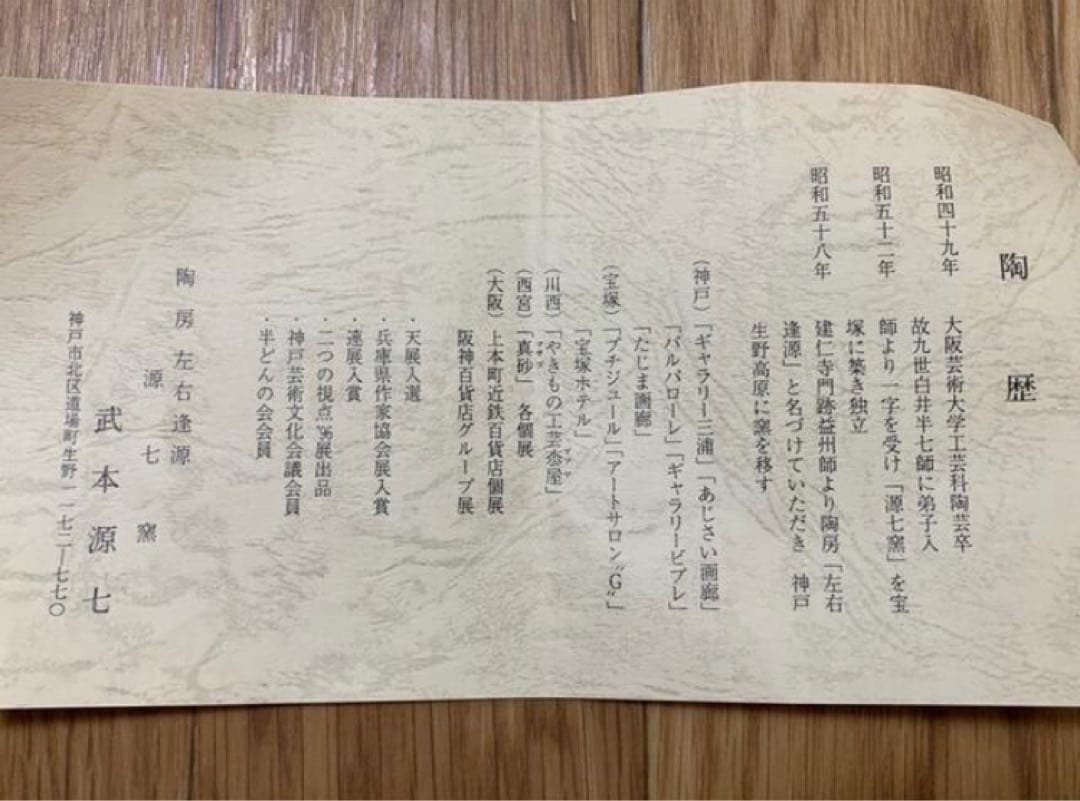 陶歴
昭和四十九年　大阪芸術大学工芸科陶芸卒
故九世白井半七師に弟子入
昭和五十二年　師より一字を受け「源七窯」を宝
塚に築き独立
昭和五十八年　建仁寺門跡益州師より陶房「左右
逢源」と名づけていただき　神戸
生野高原に窯を移す
（神戸）「ギャラリー三浦」「あじさい画廊」
「バルバローレ」「ギャラリービブレ」
「たじま画廊」
（宝塚）「プチジュール」「アートサロン"G"」
「宝塚ホテル」
（川西）「やきもの工芸杢屋」
（西宮）「真砂」各個展
（大阪）上本町近鉄百貨店個展
阪神百貨店グループ展
・天展入選
・兵庫県作家協会展入賞
・連展入賞
・二つの視点'96展出品
・神戸芸術文化会議会員
・半どんの会会員
陶房　左右逢源
源七窯
武本源七
神戸市北区道場町生野一一七二―七七〇